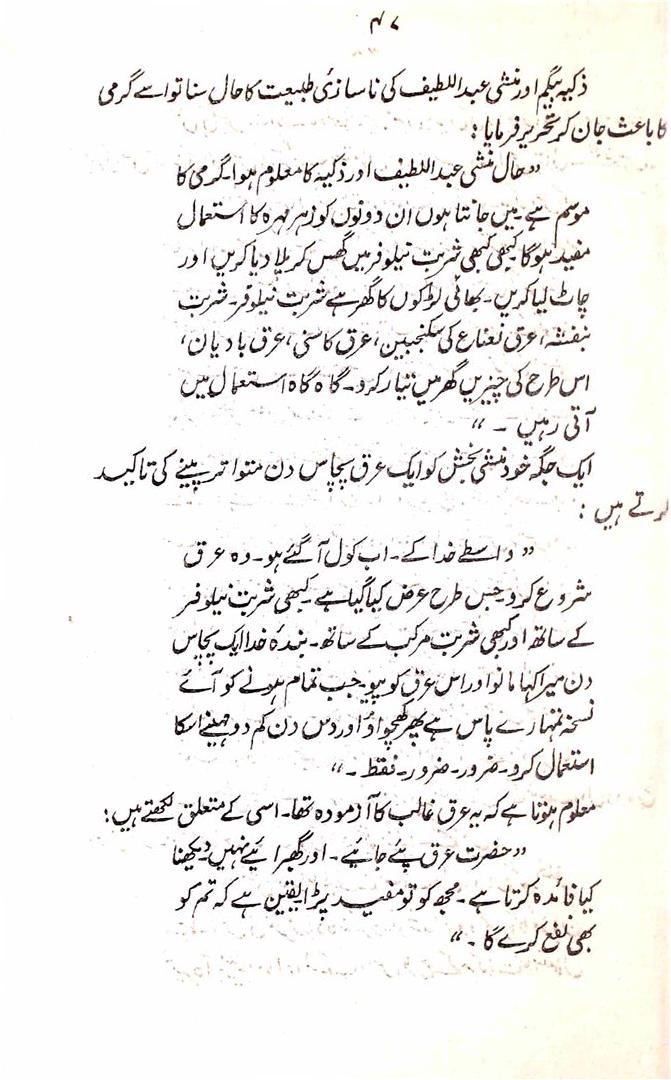 ۴۷
ذکیہ بیگم اور منشی عبداللطیف کی ناسازئ طبیعت کا حال سنا تو اسے گرمی
کا باعث جان کر تحریر فرمایا :
”حال منشی عبداللطیف اور ذکیہ کا معلوم ہوا۔ گرمی کا
موسم ہے۔ میں جانتا ہوں ان دونوں کو زہر مہرہ کا استعمال
مفید ہوگا کبھی کبھی شربت نیلوفر میں گھس کر پلا دیا کریں اور
چاٹ لیا کریں۔ بھائی لڑکوں کا گھر ہے شربت نیلوفر۔ شربت
بنفشہ، عرق نعناع کی سکنجبین، عرق کاسنی، عرق بادیان،
اس طرح کی چیزیں گھر میں تیار کرو۔ گاہ گاہ استعمال میں
آتی رہیں ۔ “
ایک جگہ خود منشی بخش کو ایک عرق پچاس دن متواتر پینے کی تاکید
کرتے ہیں :
” واسطے خدا کے۔ اب کول آ گئے ہو۔ وہ عرق
شروع کرو جس طرح عرض کیا گیا ہے۔ کبھی شربت نیلوفر
کے ساتھ اور کبھی شربت مرکب کے ساتھ۔ بندۂ خدا ایک پچاس
دن میرا کہا مانو اور اس عرق کو پیو۔ جب تمام ہونے کو آئے
نسخہ تمہارے پاس ہے پھر کھچواؤ اور دس دن کم دو مہینے اسکا
استعمال کرو۔ ضرور۔ ضرور۔ فقط ۔ “
معلوم ہوتا ہے کہ یہ عرق غالب کا آزمودہ تھا۔ اسی کے متعلق لکھتے ہیں :
” حضرت عرق پئے جائیے ۔ اور گھبرائیے نہیں دیکھنا
کیا فائدہ کرتا ہے۔ مجھ کو تو مفید پڑا یقین ہے کہ تم کو
بھی نفع کرے گا ۔ “